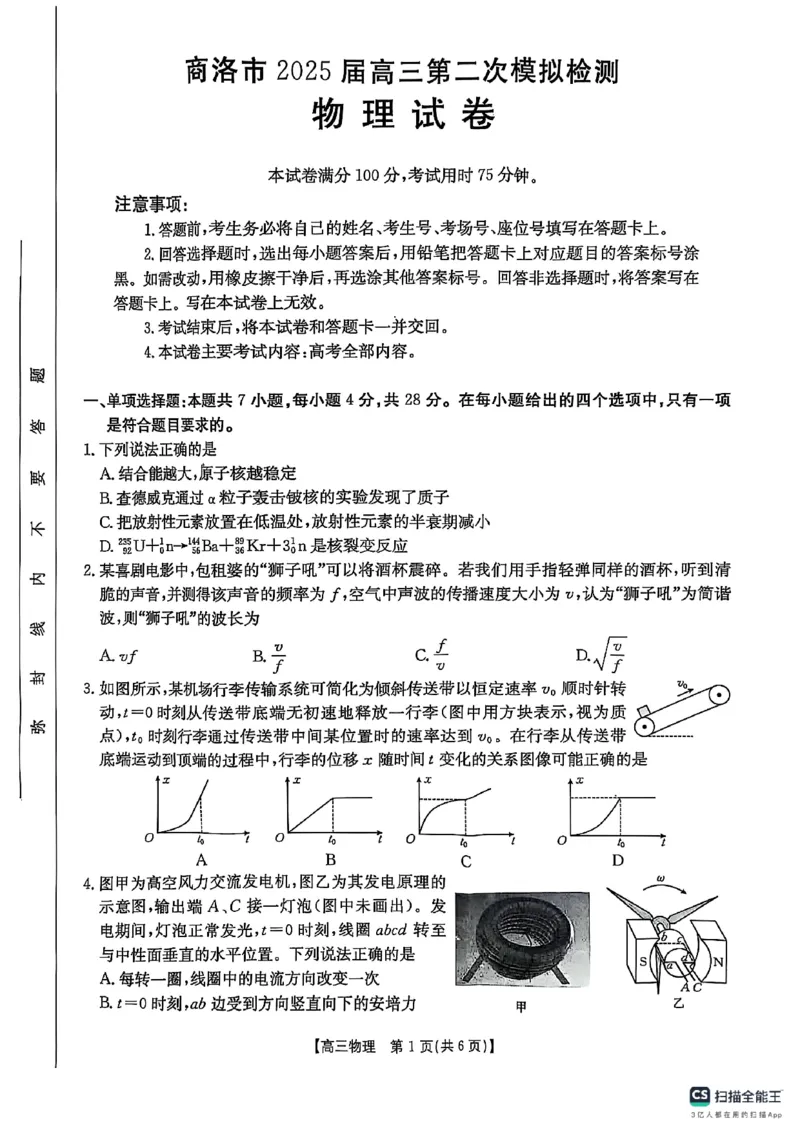 商洛市 2025 届高三第二次模拟检测
物 理 试 卷
本试卷满分 100 分,考试用时 75 分钟。
注意事项:
1.答题前,考生务必将自己的姓名、考生号、考场号、座位号填写在答题卡上。
2.回答选择题时,选出每小题答案后,用铅笔把答题卡上对应题目的答案标号涂
黑。如需改动,用橡皮擦干净后,再选涂其他答案标号。回答非选择题时,将答案写在
答题卡上。写在本试卷上无效。
3.考试结束后,将本试卷和答题卡一并交回。
4.本试卷主要考试内容:高考全部内容。
弥 封 线 内 不 要 答 题
一、单项选择题:本题共 7 小题,每小题 4 分,共 28 分。在每小题给出的四个选项中,只有一项
是符合题目要求的。
1.下列说法正确的是
A.结合能越大,原子核越稳定
B.查德威克通过 α 粒子轰击铍核的实验发现了质子
C.把放射性元素放置在低温处,放射性元素的半衰期减小
D. ²³⁵₉₂U+¹₀n→¹⁴⁴₅₆Ba+⁸⁹₃₆Kr+3¹₀n 是核裂变反应
2.某喜剧电影中,包租婆的“狮子吼”可以将酒杯震碎。若我们用手指轻弹同样的酒杯,听到清
脆的声音,并测得该声音的频率为 f,空气中声波的传播速度大小为 v,认为“狮子吼”为简谐
波,则“狮子吼”的波长为
A. vf B. v/f C. f/v D. √(v/f)
3.如图所示,某机场行李传输系统可简化为倾斜传送带以恒定速率 v₀ 顺时针转
动,t=0 时刻从传送带底端无初速地释放一行李(图中用方块表示,视为质
点),t₀ 时刻行李通过传送带中间某位置时的速率达到 v₀。在行李从传送带
底端运动到顶端的过程中,行李的位移 x 随时间 t 变化的关系图像可能正确的是
v₀
x x x x
O t₀ t O t₀ t O t₀ t O t₀ t
A B C D
4.图甲为高空风力交流发电机,图乙为其发电原理的
示意图,输出端 A、C 接一灯泡(图中未画出)。发
电期间,灯泡正常发光,t=0 时刻,线圈 abcd 转至
与中性面垂直的水平位置。下列说法正确的是
A.每转一圈,线圈中的电流方向改变一次
B. t=0 时刻,ab 边受到方向竖直向下的安培力
ω
b c
S a d N
A C
甲 乙
【高三物理 第 1 页(共 6 页)】
CS 扫描全能王
3亿人都在用的扫描App